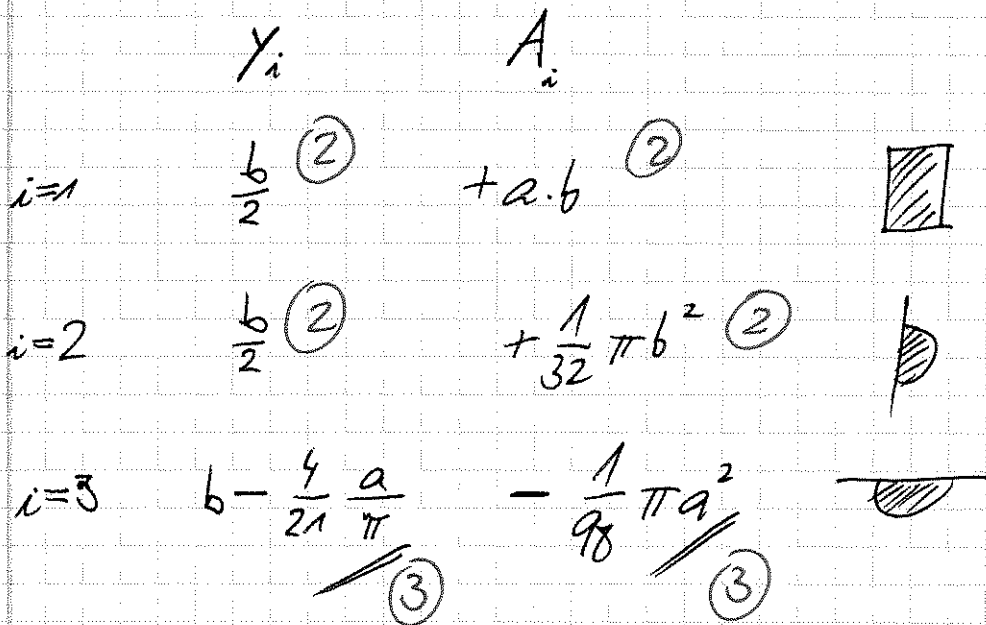 y_i A_i
i=1 b/2 ② +a.b ②
i=2 b/2 ② + 1/32 πb² ②
i=3 b - 4/21 a/π ③ - 1/98 πa² ③